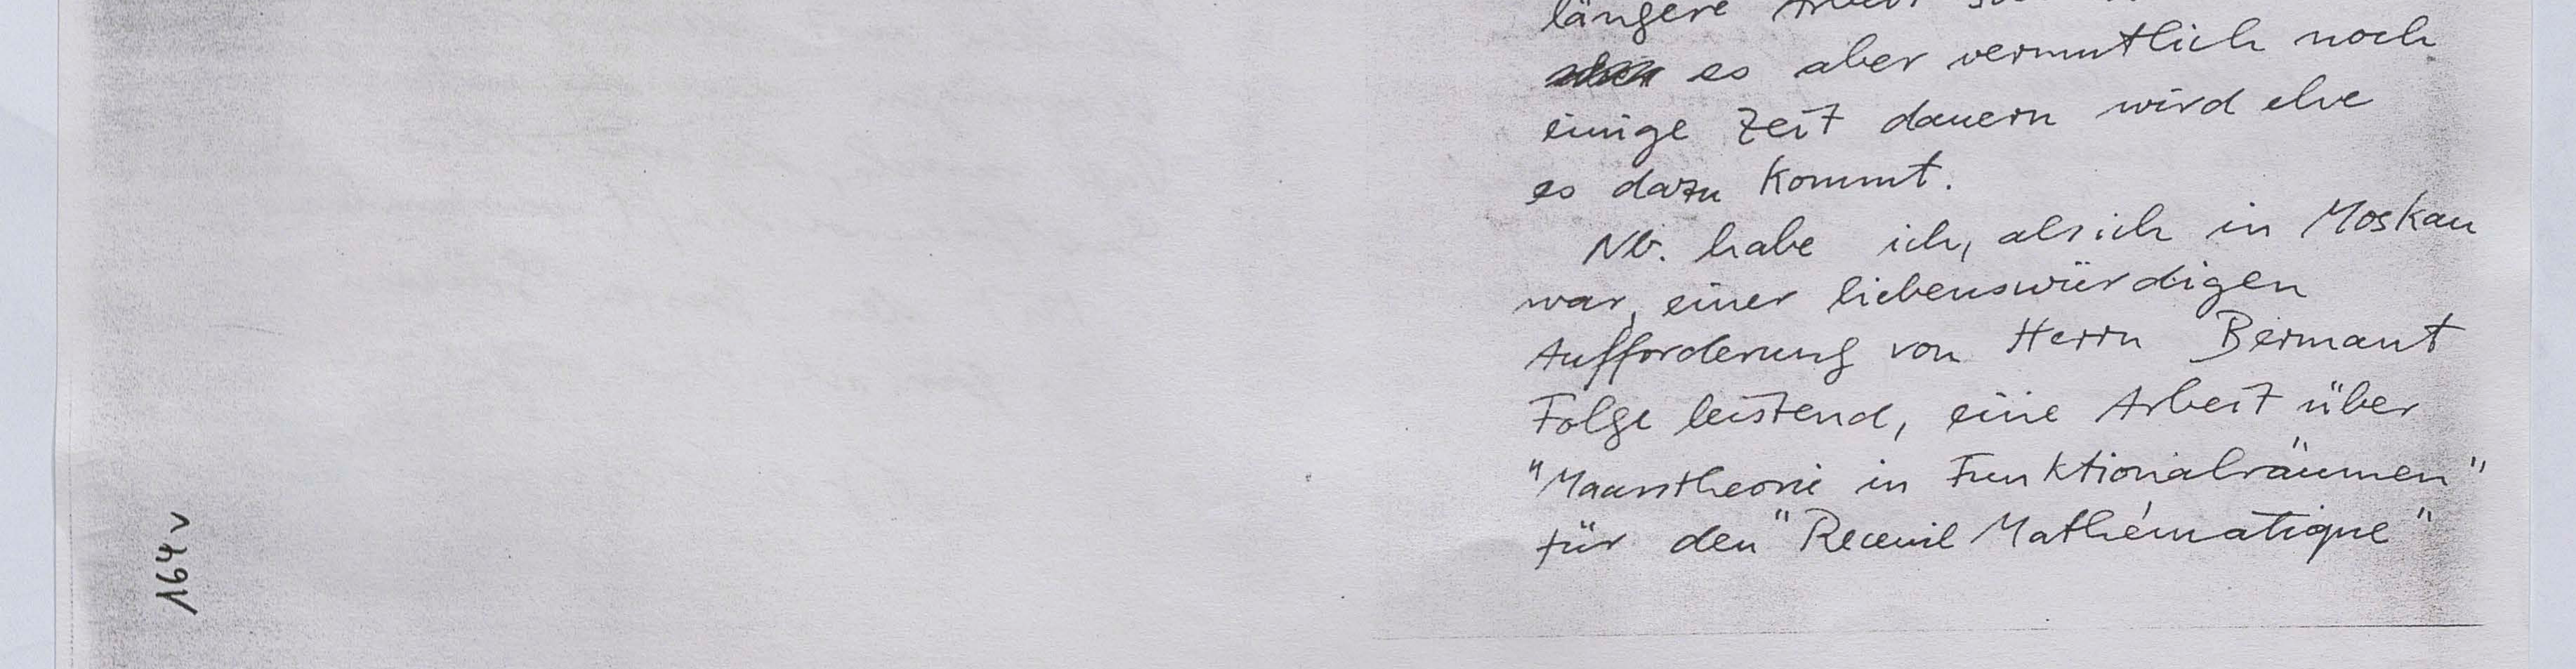 längere Arbeit
es aber vermutlich noch
einige Zeit dauern wird ehe
es dazu kommt.
Nb. habe ich, als ich in Moskau
war, einer liebenswürdigen
Aufforderung von Herrn Bermant
Folge leistend, eine Arbeit über
"Maasstheorie in Funktionalräumen"
für den "Receuil Mathématique"
164v